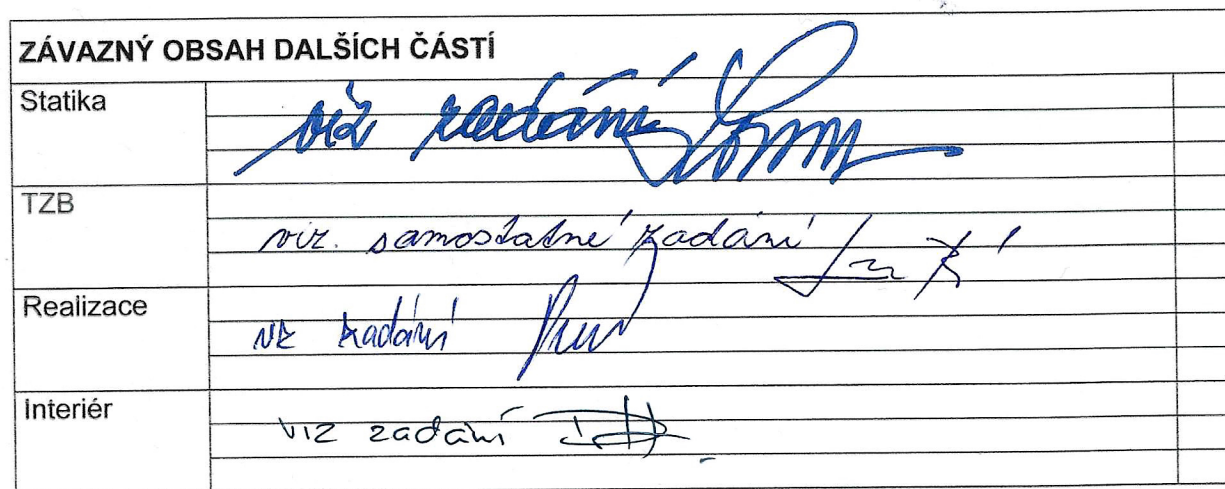 ZÁVAZNÝ OBSAH DALŠÍCH ČÁSTÍ
Statika
viz zadání
TZB
viz. samostatné zadání
Realizace
viz zadání
Interiér
viz zadání